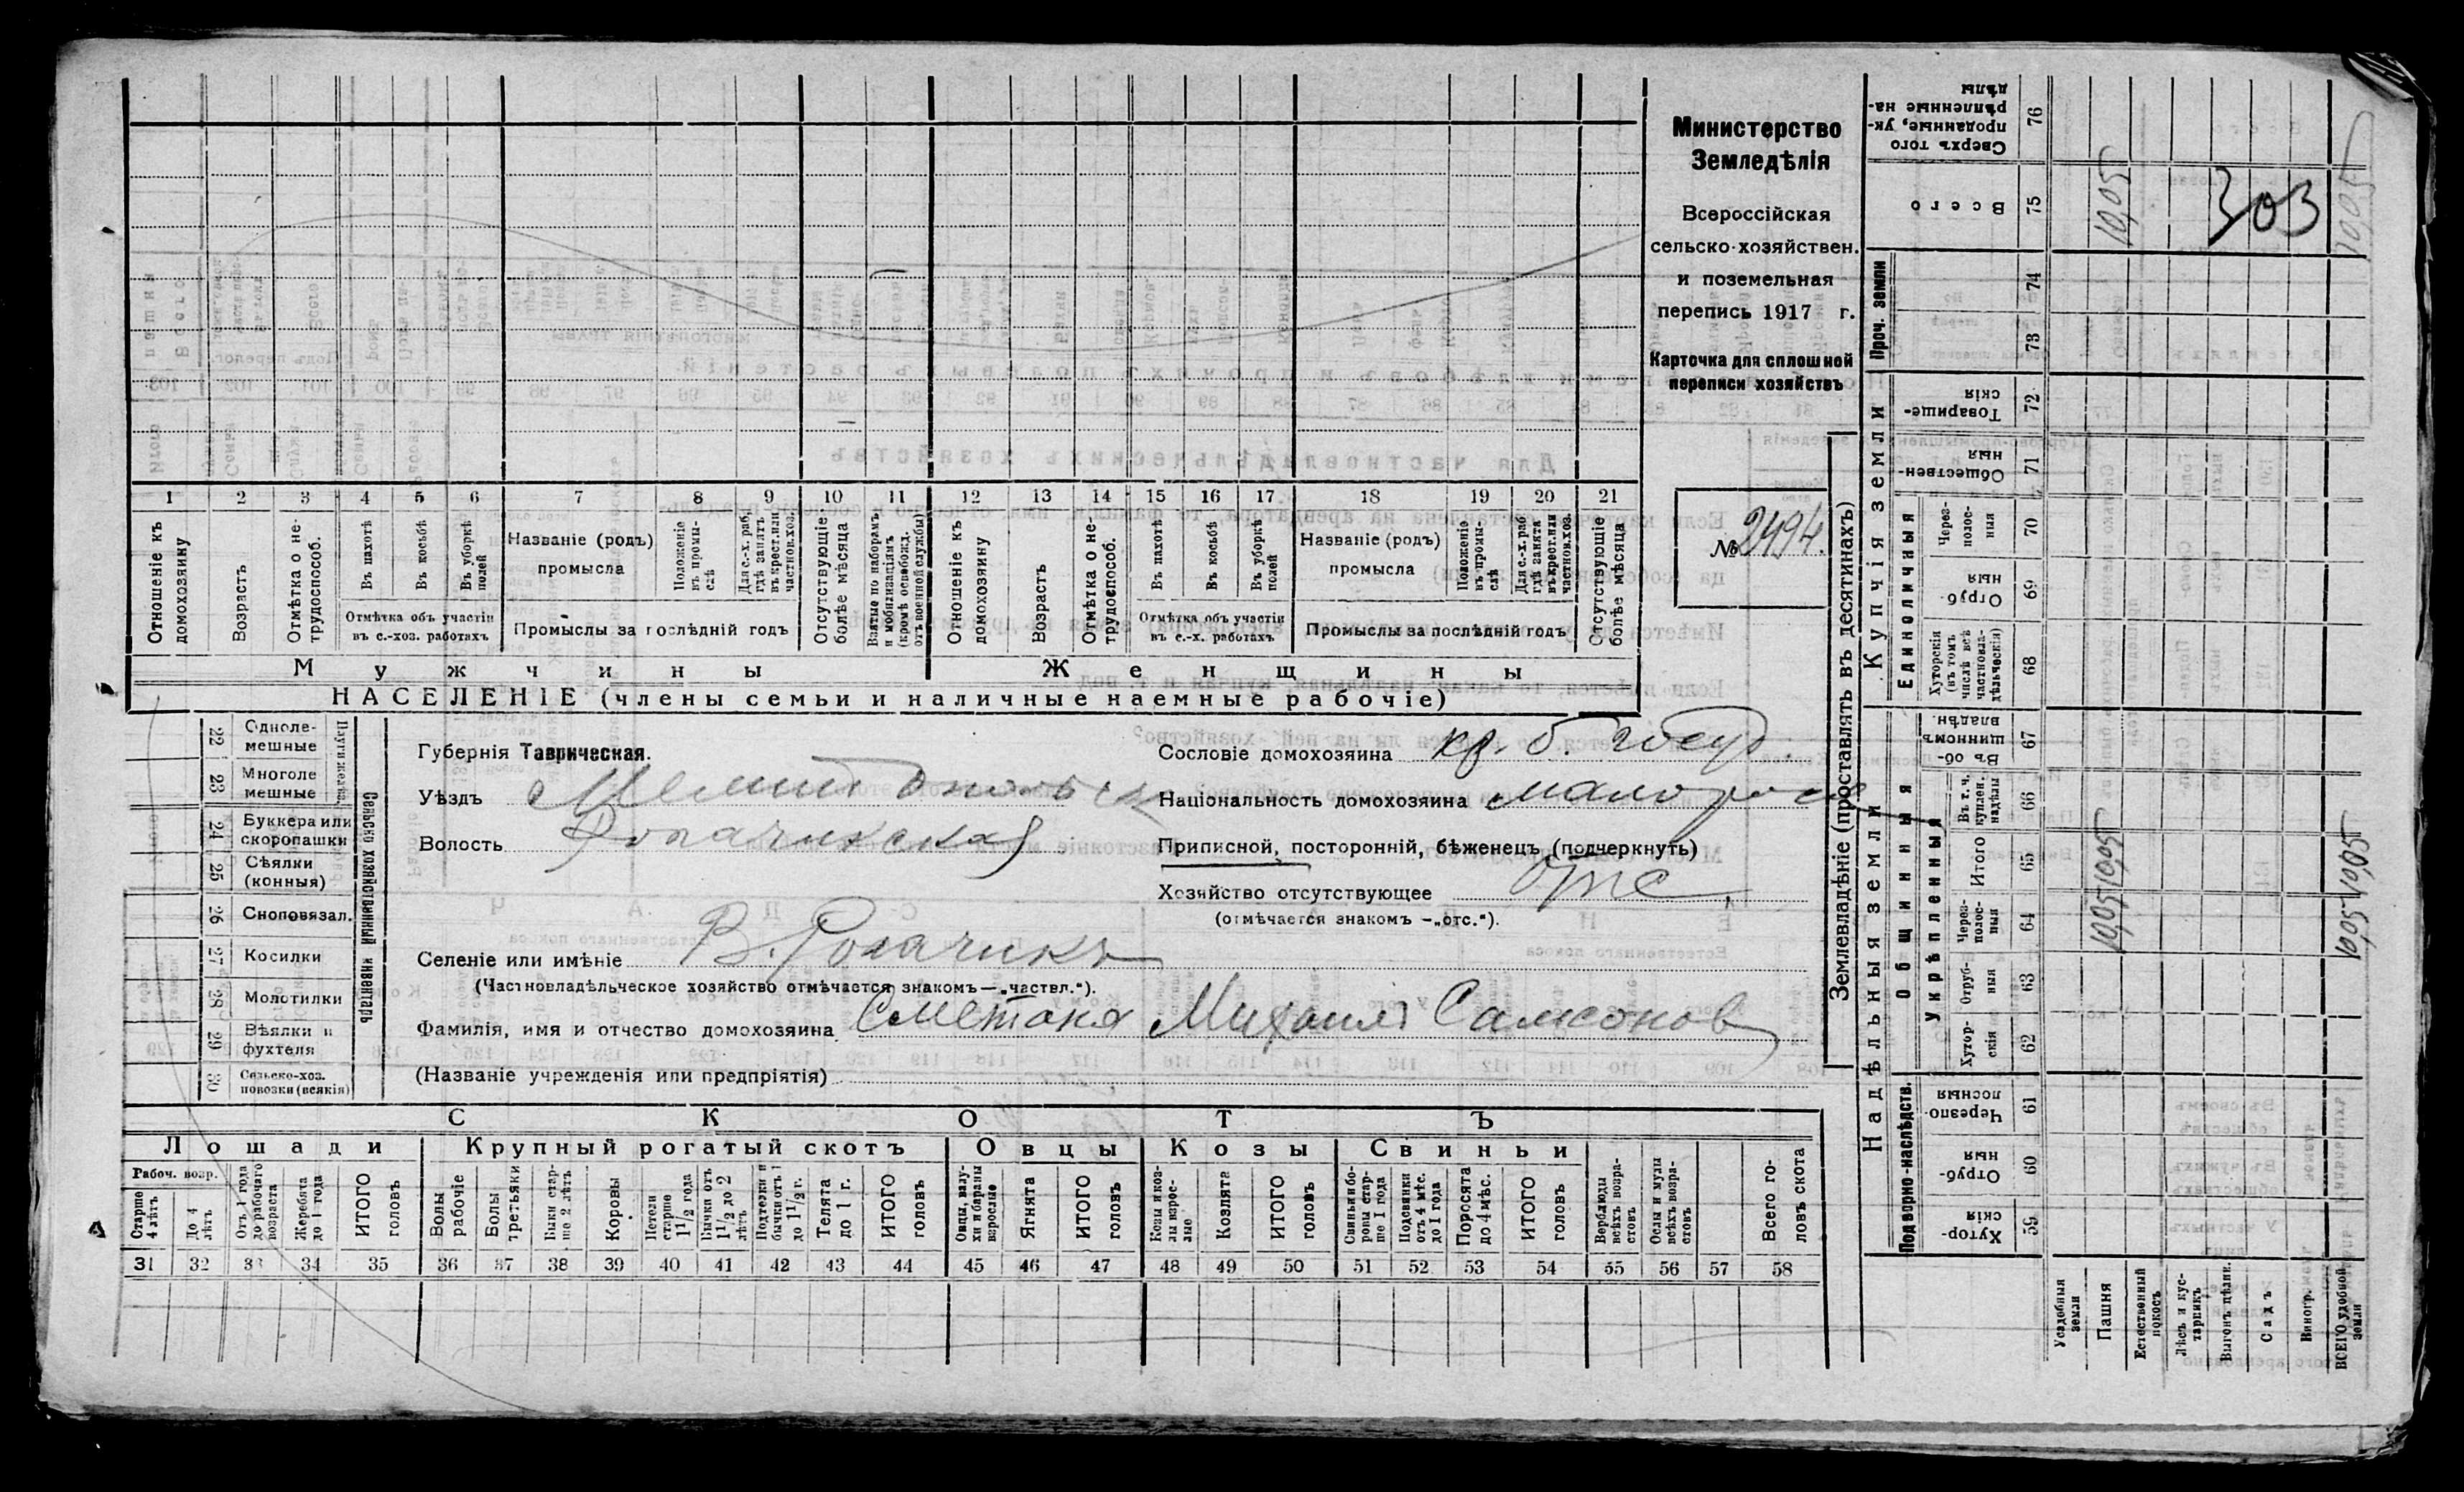 Министерство
Земледѣлія
Всероссійская
сельско-хозяйствен.
и поземельная
перепись 1917 г.
Карточка для сплошной
переписи хозяйствъ
№ 2494.
1 2 3 4 5 6 7 8 9 10 11 12 13 14 15 16 17 18 19 20 21
Отношеніе къ домохозяину
Возрастъ
Отмѣтка о нетрудоспособ.
Въ пахотѣ
Въ косьбѣ
Въ уборкѣ полей
Отмѣтка объ участіи въ с.-хоз. работахъ
Названіе (родъ) промысла
Положеніе въ промыслѣ
Для с.-х. раб. гдѣ занятъ въ крест. или частнов. хоз.
Промыслы за послѣдній годъ
Отсутствующіе болѣе мѣсяца
Взятые по наборамъ и мобилизаціямъ (кромѣ освобожд. отъ военной службы)
Отношеніе къ домохозяину
Возрастъ
Отмѣтка о нетрудоспособ.
Въ пахотѣ
Въ косьбѣ
Въ уборкѣ полей
Отмѣтка объ участіи въ с.-х. работахъ
Названіе (родъ) промысла
Положеніе въ промыслѣ
Для с.-х. раб. гдѣ занята въ крест. или частнов. хоз.
Промыслы за послѣдній годъ
Отсутствующіе болѣе мѣсяца
Мужчины
Женщины
НАСЕЛЕНІЕ (члены семьи и наличные наемные рабочіе)
22 Однолемешные
23 Многолемешные
Плуги желѣз.
24 Буккера или скоропашки
25 Сѣялки (конныя)
26 Сноповязал.
27 Косилки
28 Молотилки
29 Вѣялки и фухтеля
30 Сельско-хоз. повозки (всякія)
Сельско хозяйственный инвентарь
Губернія Таврическая.
Уѣздъ Мелитопольск
Волость Рогачикская
Селеніе или имѣніе В. Рогачикъ
(Частновладѣльческое хозяйство отмѣчается знакомъ—„частвл.").
Фамилія, имя и отчество домохозяина Сметана Михаилъ Самсонов
(Названіе учрежденія или предпріятія)
Сословіе домохозяина кр. б. госуд.
Національность домохозяина малоросс
Приписной, посторонній, бѣженецъ (подчеркнуть)
Хозяйство отсутствующее отс.
(отмѣчается знакомъ —„отс.").
СКОТЪ
Лошади Крупный рогатый скотъ Овцы Козы Свиньи
Рабоч. возр.
Старше 4 лѣтъ
До 4 лѣтъ
Отъ 1 года до рабочаго возраста
Жеребята до 1 года
ИТОГО головъ
Волы рабочіе
Волы третьяки
Быки старше 2 лѣтъ
Коровы
Нетели старше 1 1/2 года
Бычки отъ 1 1/2 до 2 лѣтъ
Подтелки и бычки отъ 1 до 1 1/2 г.
Телята до 1 г.
ИТОГО головъ
Овцы, валухи и бараны взрослые
Ягнята
ИТОГО головъ
Козы и козлы взрослые
Козлята
ИТОГО головъ
Свиньи и боровы старше 1 года
Подсвинки отъ 4 мѣс. до 1 года
Поросята до 4 мѣс.
ИТОГО головъ
Верблюды всѣхъ возрастовъ
Ослы и мулы всѣхъ возрастовъ
Всего головъ скота
31 32 33 34 35 36 37 38 39 40 41 42 43 44 45 46 47 48 49 50 51 52 53 54 55 56 57 58
Землевладѣніе (проставлять въ десятинахъ)
Надѣльныя земли
Купчія земли
Проч. земли
Подворно-наслѣдств.
Общинныя
Укрѣпленныя
Единоличныя
Хуторскія 59
Отрубныя 60
Черезполосныя 61
Хуторскія 62
Отрубныя 63
Черезполосныя 64
Итого 65
Въ т. ч. куплен. надѣлы 66
Въ общинномъ владѣн. 67
Хуторскія (въ томъ числѣ всѣ частновладѣльческія) 68
Отрубныя 69
Черезполосныя 70
Общественныя 71
Товарищескія 72
73
74
Всего 75
Сверхъ того проданные, укрѣпленные надѣлы 76
Усадебныя земли
Пашня 10,05 10,05 10,05
Естественный покосъ
Лѣсъ и кустарникъ
Выгонъ цѣлик.
Садъ
Виногр.
ВСЕГО удобной земли 10,05 10,05 10,05
303